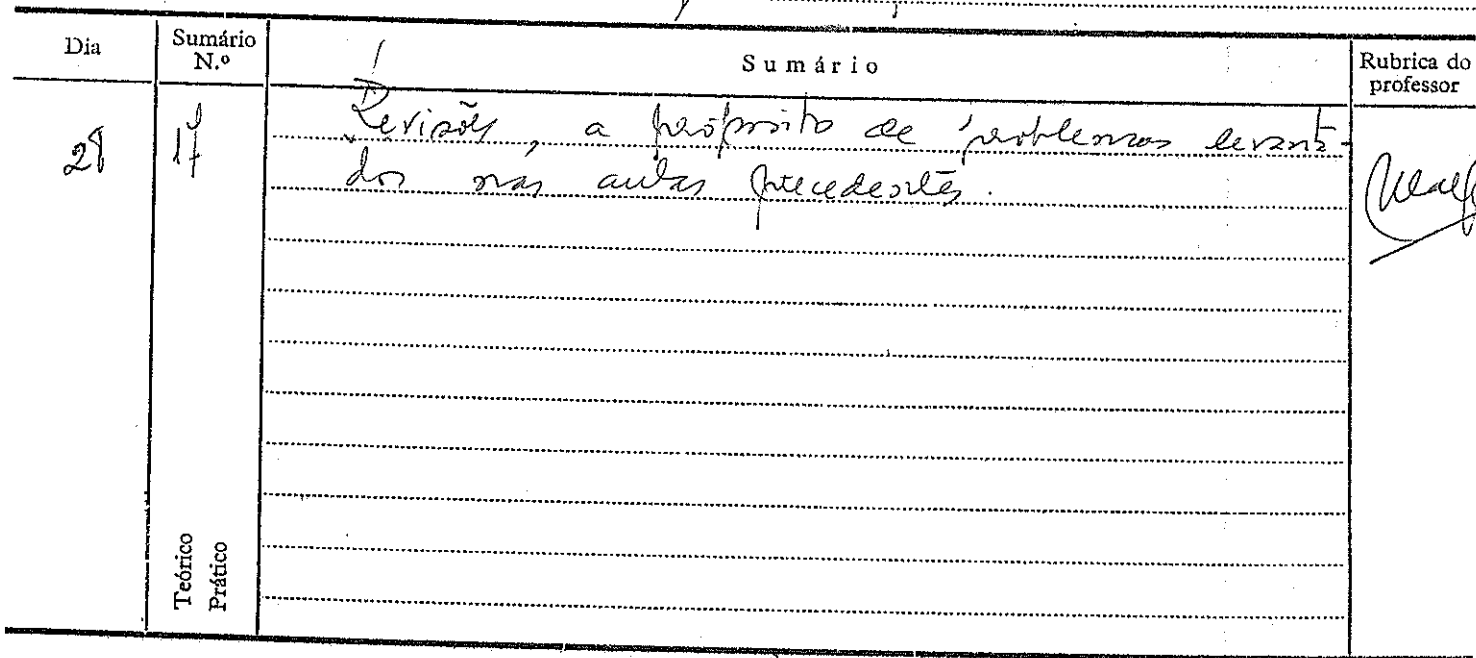 Dia
Sumário N.º
Sumário
Rubrica do professor
28
17
Revisões, a propósito de problemas levanta-
dos nas aulas precedentes.
Teórico
Prático